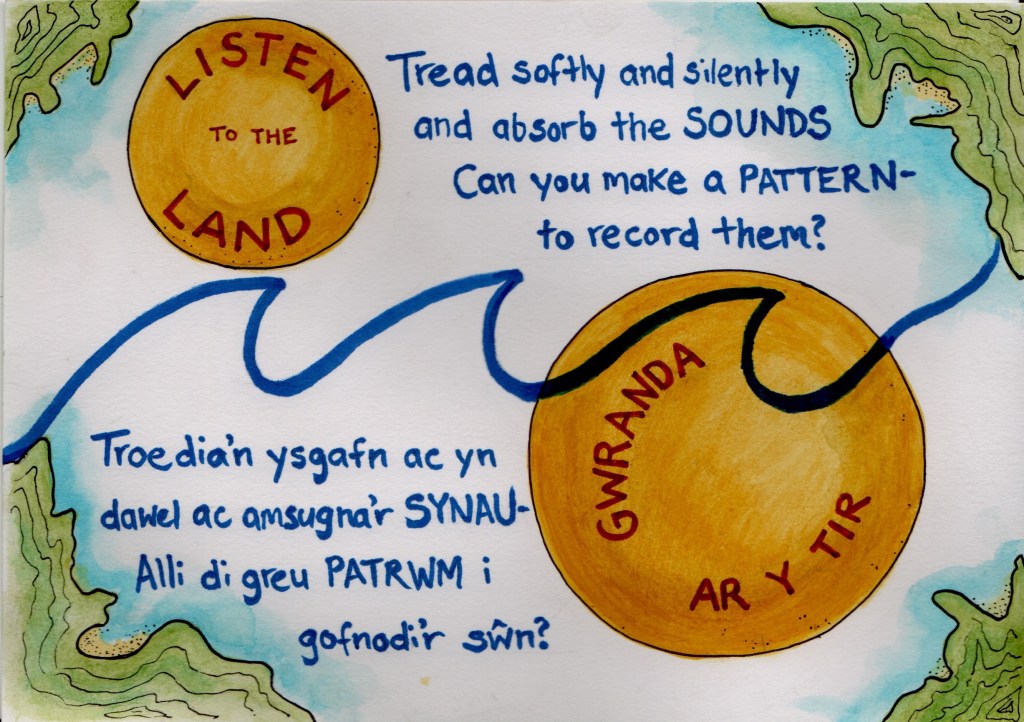 LISTEN
TO THE
LAND
Tread softly and silently
and absorb the SOUNDS
Can you make a PATTERN-
to record them?
GWRANDA
AR Y TIR
Troedia'n ysgafn ac yn
dawel ac amsugna'r SYNAU-
Alli di greu PATRWM i
gofnodi'r sŵn?